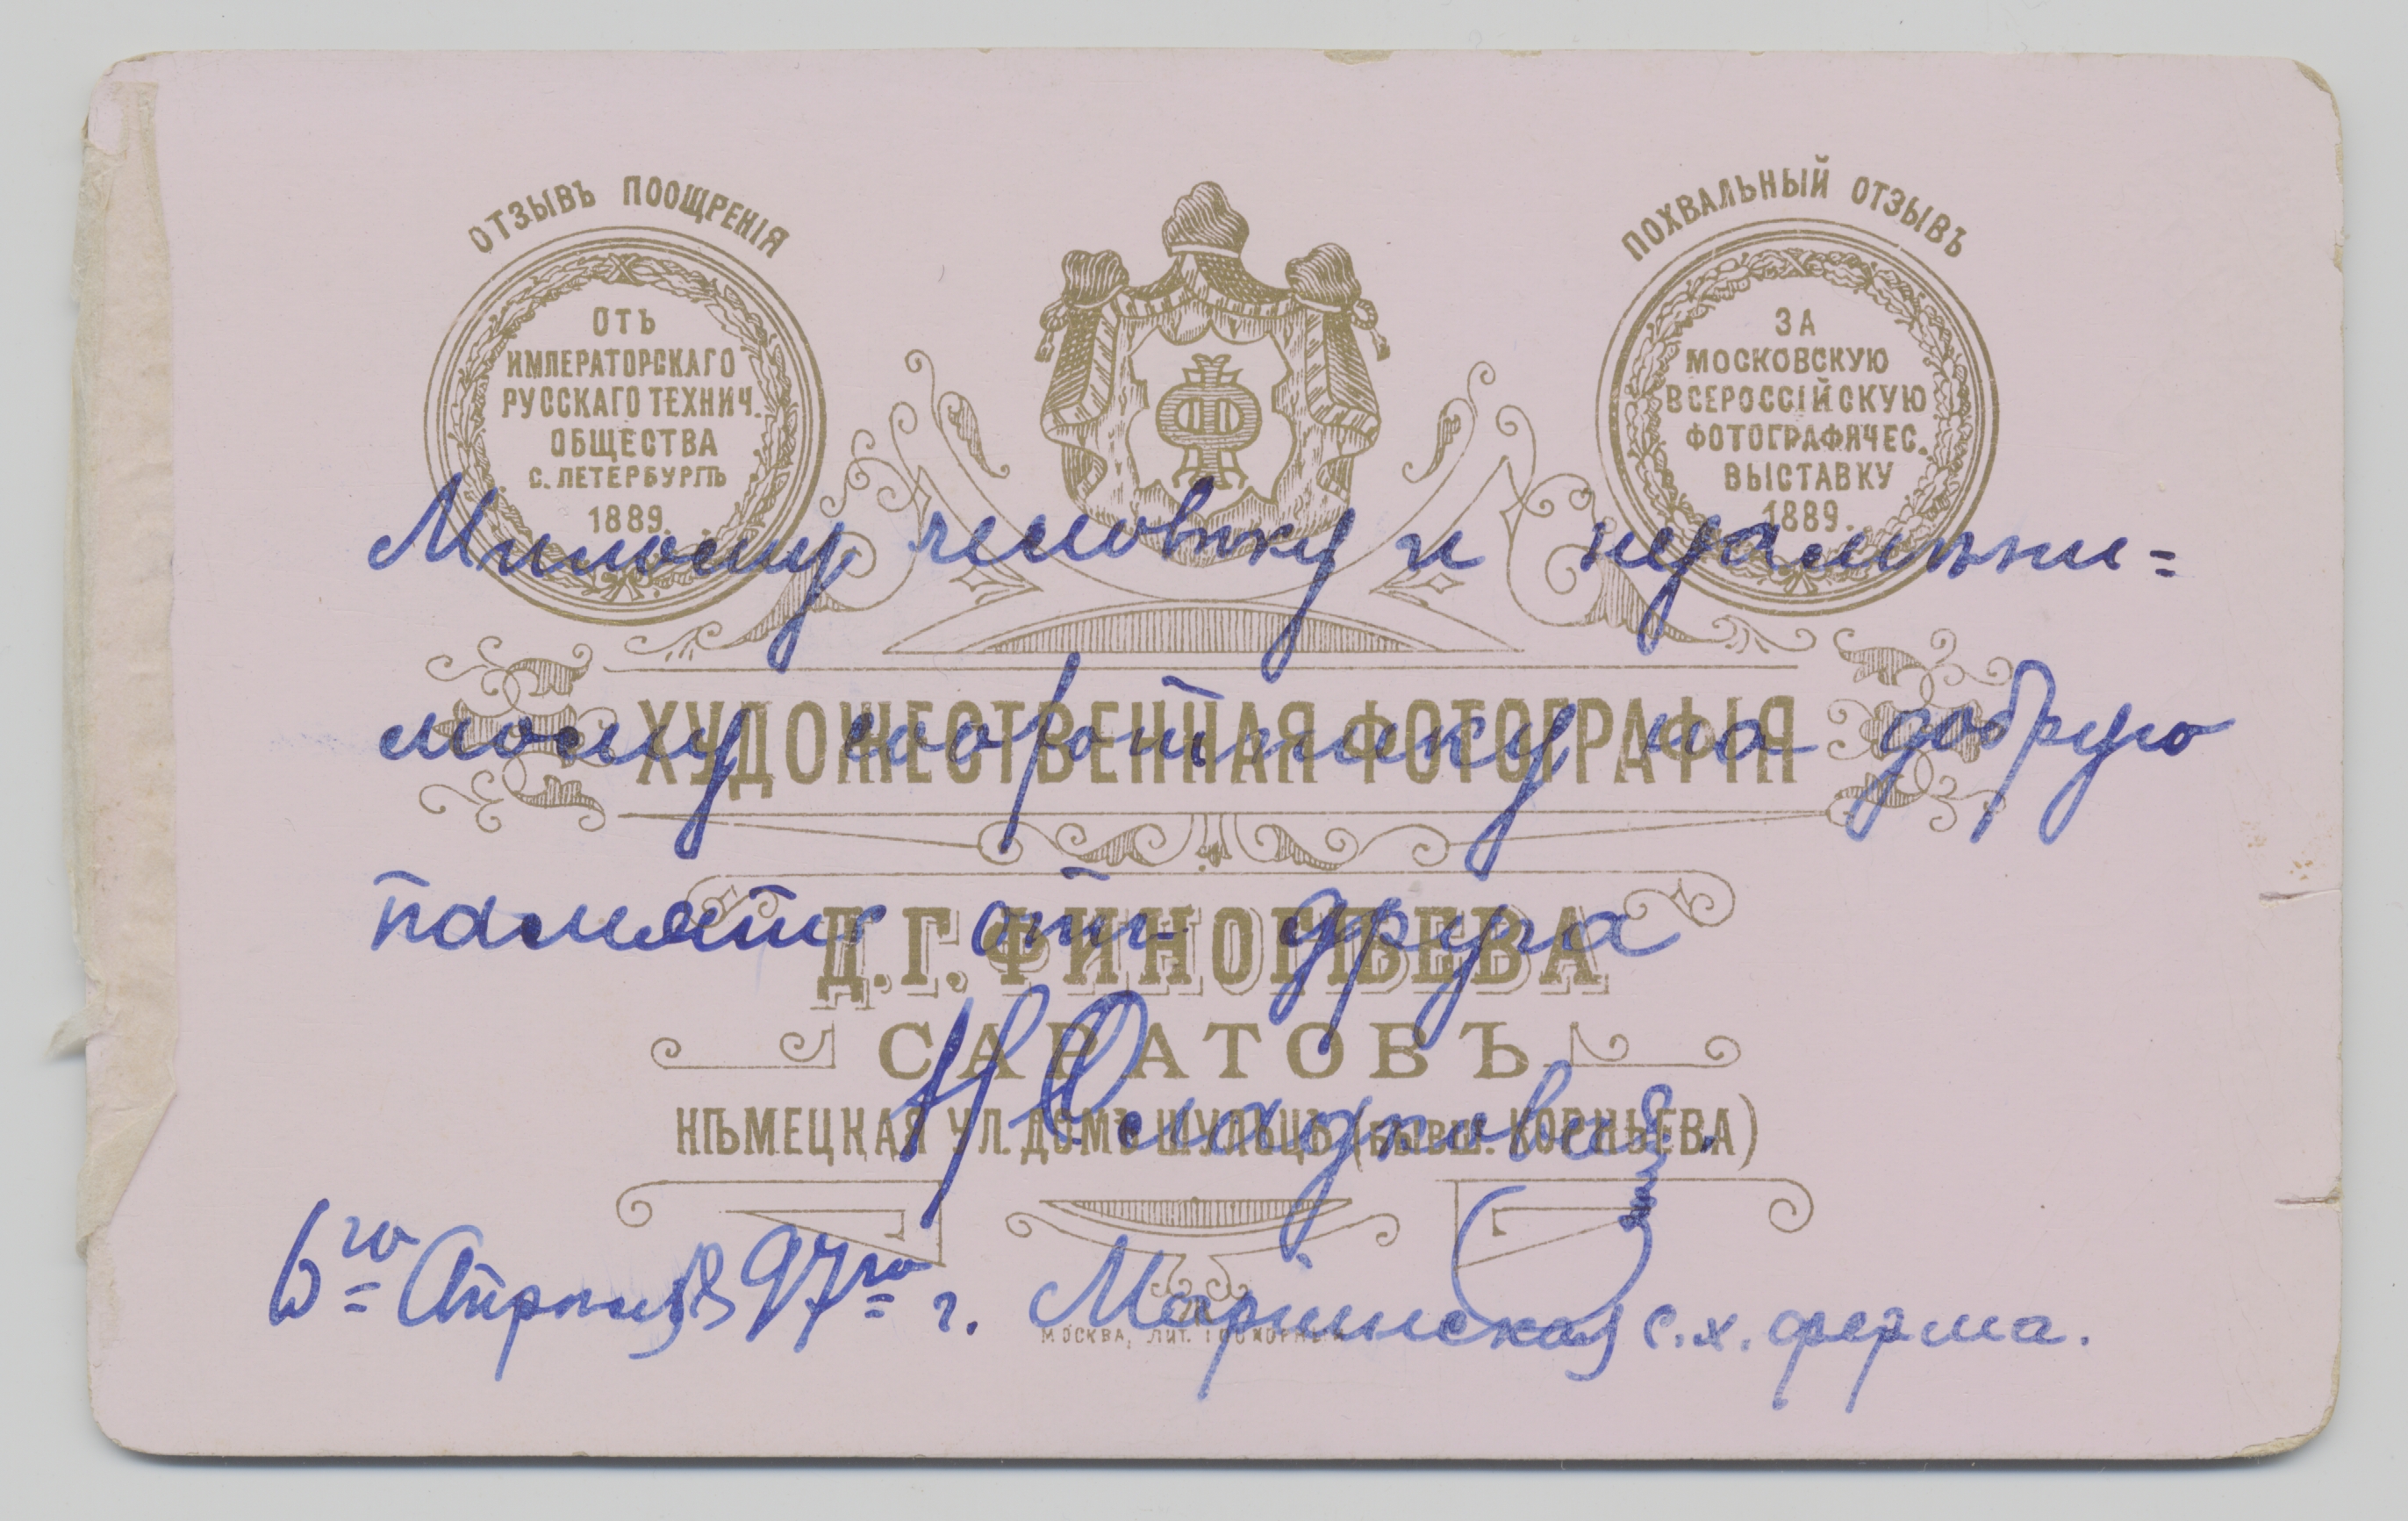 ОТЗЫВЪ ПООЩРЕНІЯ
ОТЪ
ИМПЕРАТОРСКАГО
РУССКАГО ТЕХНИЧ.
ОБЩЕСТВА
С. ПЕТЕРБУРГЪ
1889.
ПОХВАЛЬНЫЙ ОТЗЫВЪ
ЗА
МОСКОВСКУЮ
ВСЕРОССІЙСКУЮ
ФОТОГРАФИЧЕС.
ВЫСТАВКУ
1889.
Милому человѣку и
моему на добрую
память отъ друга
ХУДОЖЕСТВЕННАЯ ФОТОГРАФІЯ
Д. Г. ФИНОГѢЕВА
САРАТОВЪ
НѢМЕЦКАЯ УЛ. ДОМЪ ШУЛЬЦЪ (БЫВШ. КОРНѢЕВА)
6го Апрѣля 97го г. Маріинская с. х. ферма.
МОСКВА, ЛИТ.